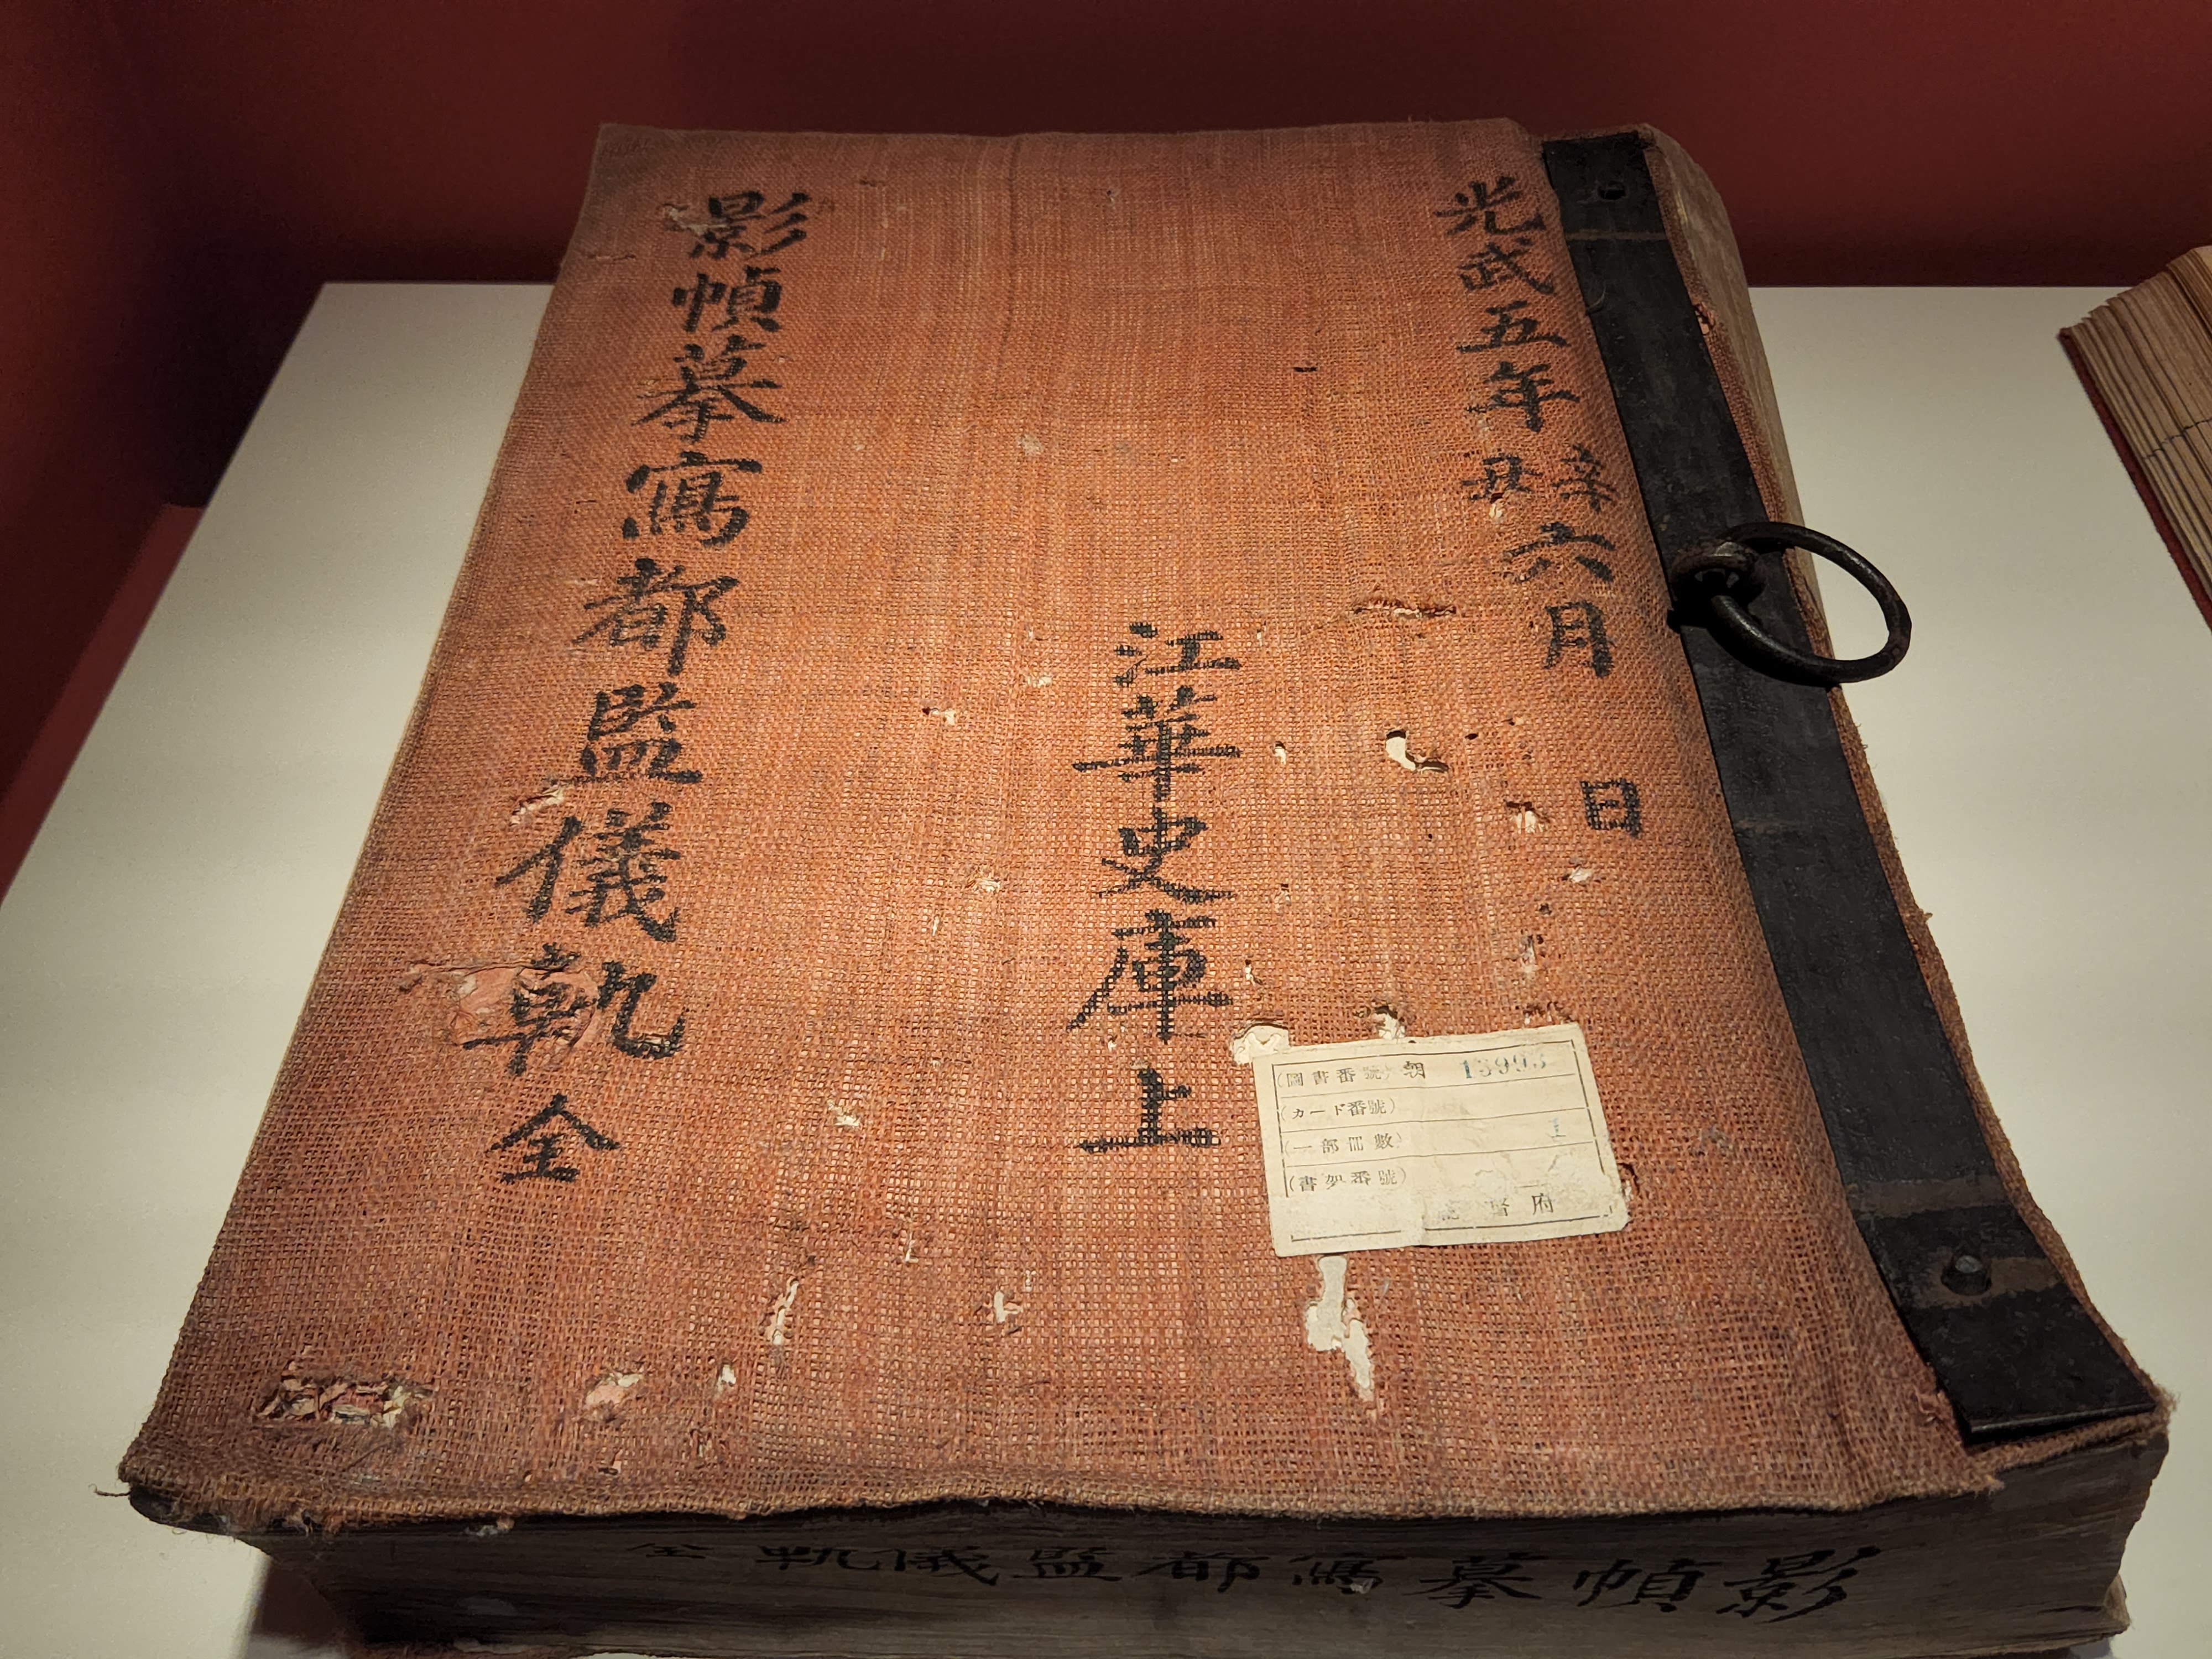 光武五年辛丑六月 日
江華史庫上
影幀摹寫都監儀軌全
(圖書番號) 朝 13993
(カード番號)
(一部冊數) 1
(書架番號)
府
影幀摹寫都監儀軌全